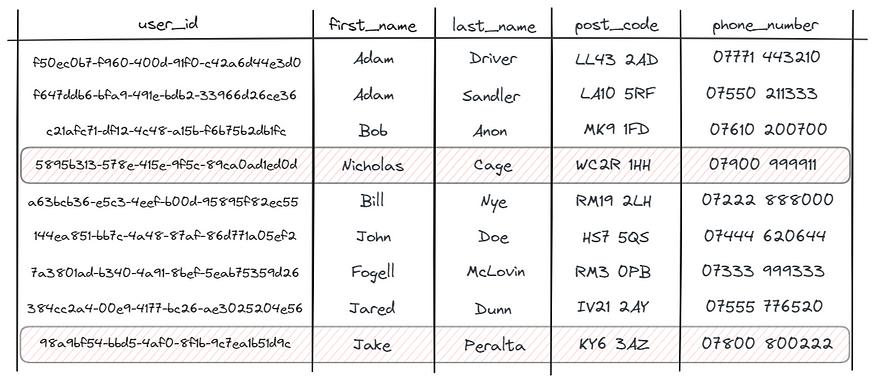 user_id first_name last_name post_code phone_number
f50ec0b7-f960-400d-91f0-c42a6d44e3d0 Adam Driver LL43 2AD 07771 443210
f647ddb6-bfa9-491e-bdb2-33966d26ce36 Adam Sandler LA10 5RF 07550 211333
c21afc71-df12-4c48-a15b-f6b75b2db1fc Bob Anon MK9 1FD 07610 200700
5895b313-578e-415e-9f5c-89ca0ad1ed0d Nicholas Cage WC2R 1HH 07900 999911
a63bcb36-e5c3-4eef-b00d-95895f82ec55 Bill Nye RM19 2LH 07222 888000
144ea851-bb7c-4a48-87af-86d771a05ef2 John Doe HS7 5QS 07444 620644
7a3801ad-b340-4a91-8bef-5eab75359d26 Fogell McLovin RM3 0PB 07333 999333
384cc2a4-00e9-4177-bc26-ae3025204e56 Jared Dunn IV21 2AY 07555 776520
98a9bf54-bbd5-4af0-8f1b-9c7ea1b51d9c Jake Peralta KY6 3AZ 07800 800222